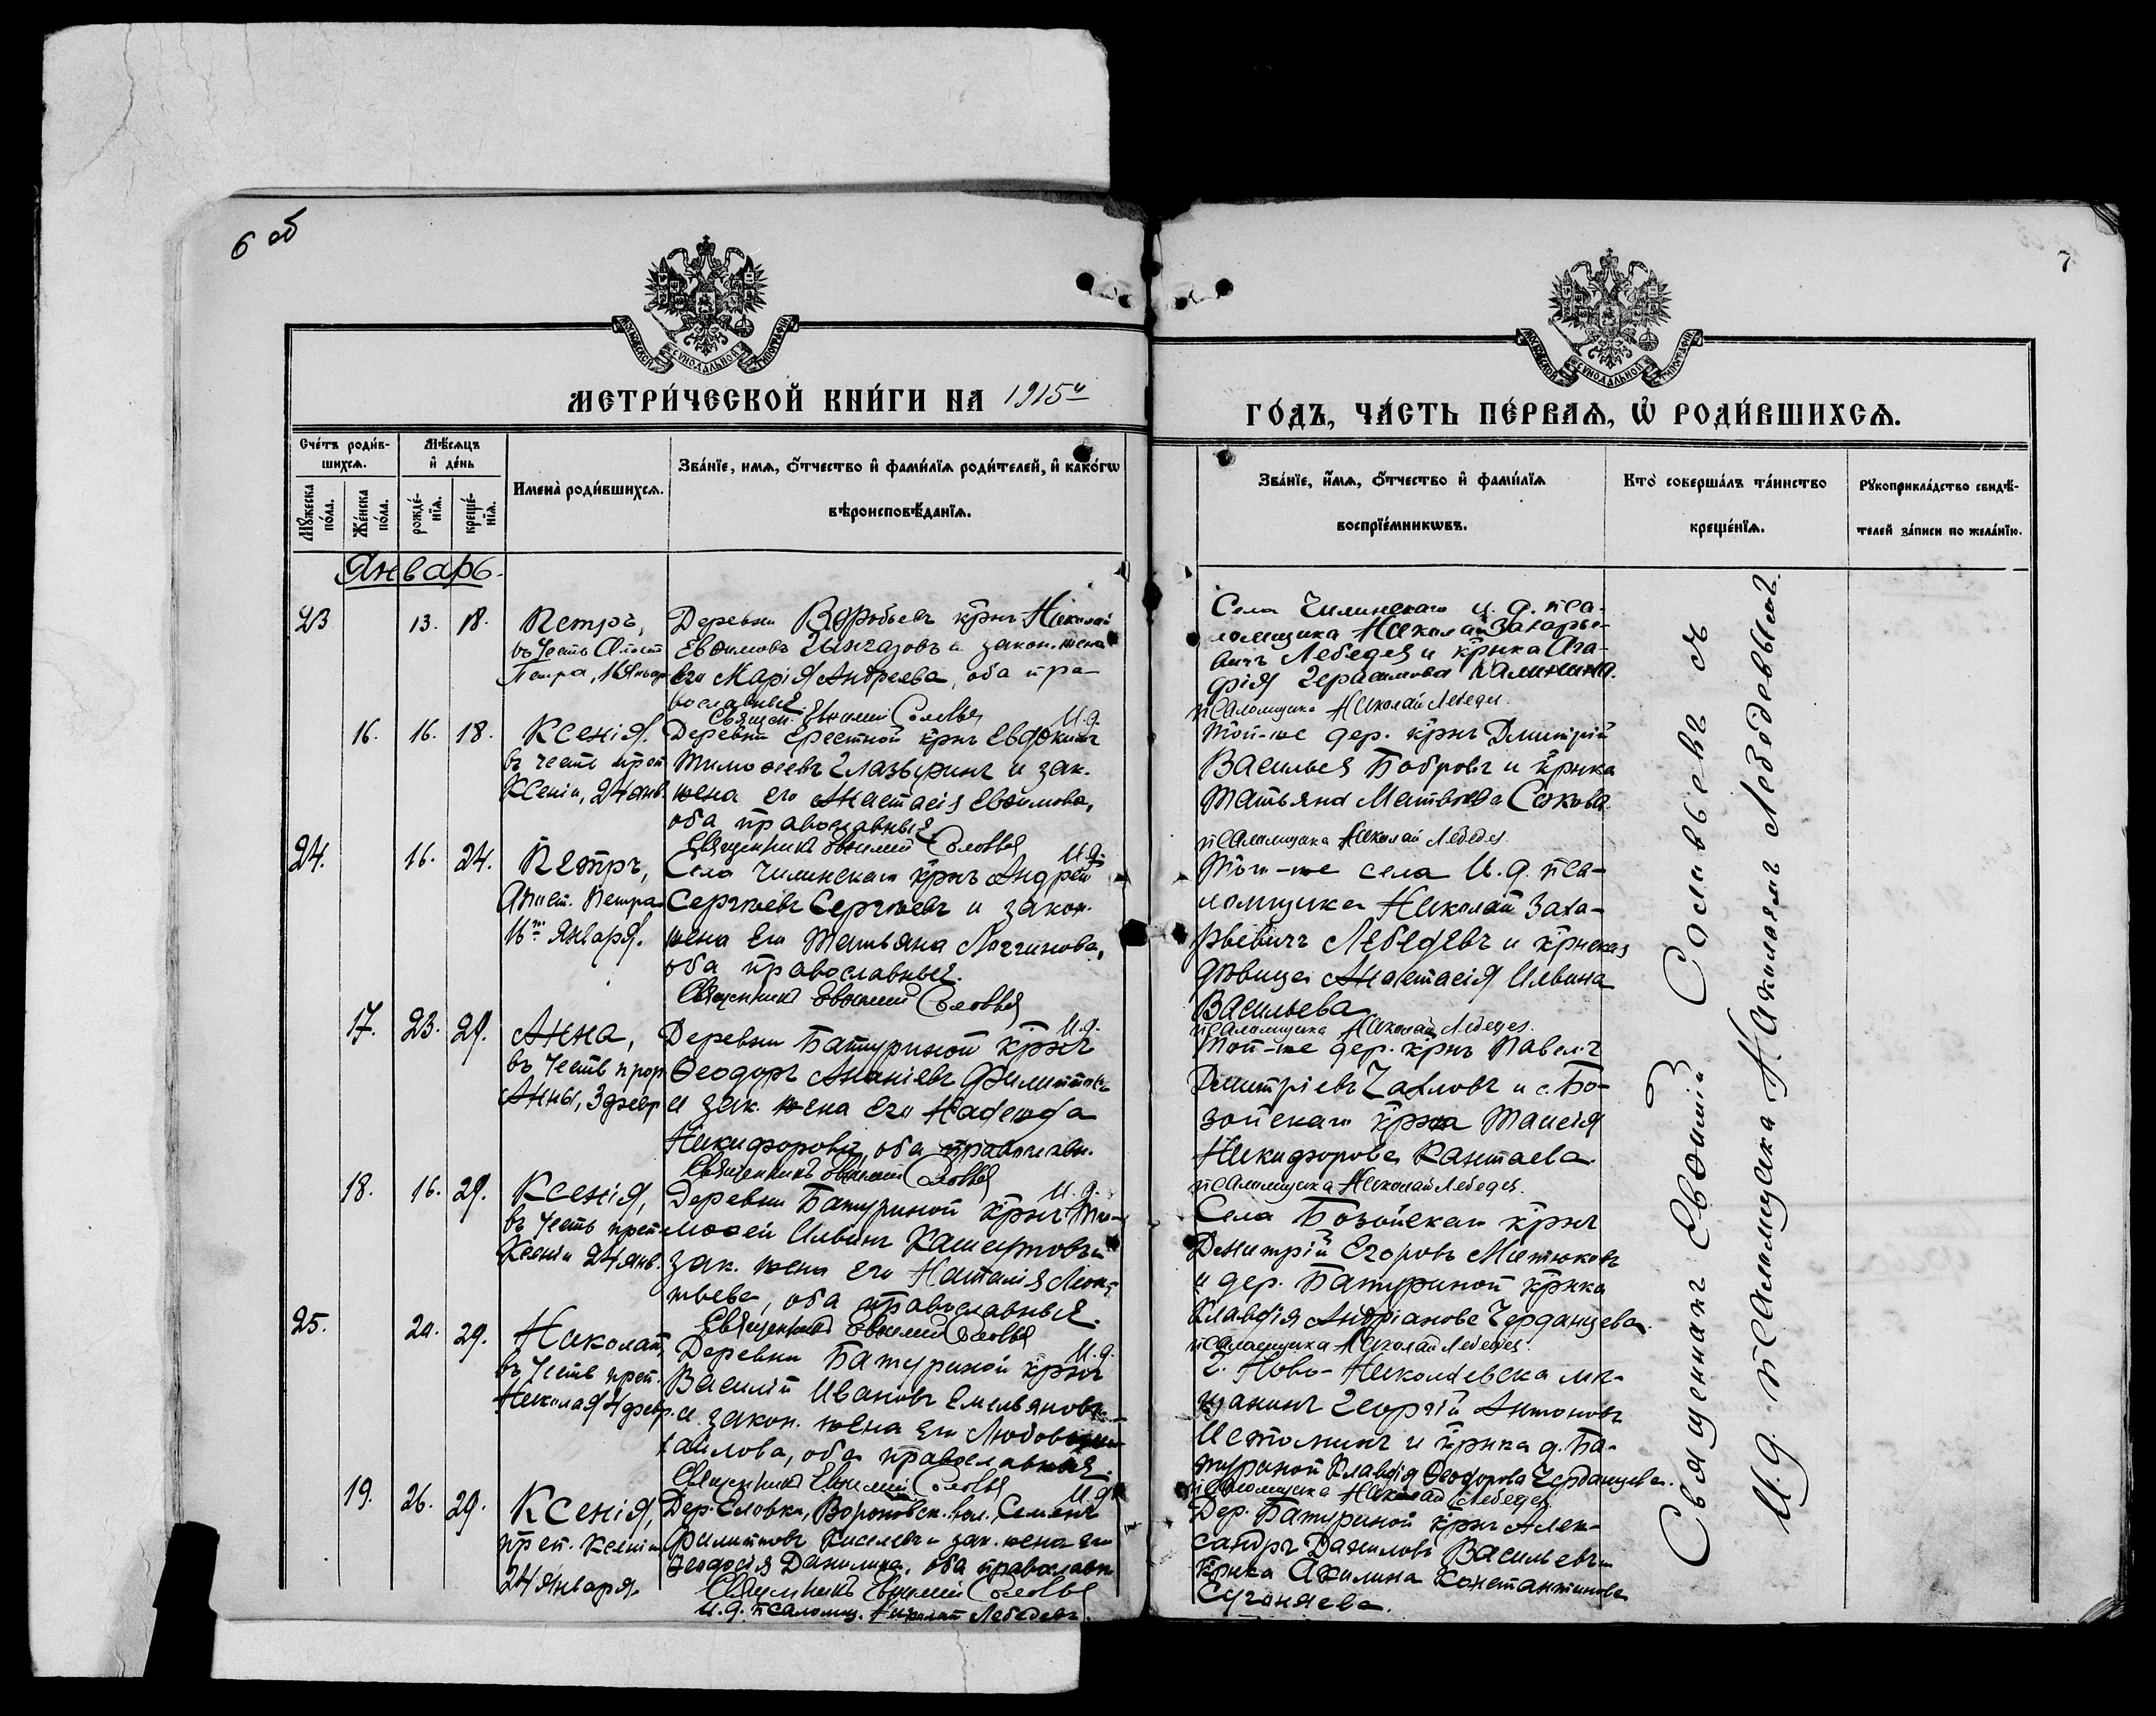 6 об
7
МОСКОВСКОЙ СѴНОДАЛЬНОЙ ТИПОГРАФІИ
МОСКОВСКОЙ СѴНОДАЛЬНОЙ ТИПОГРАФІИ
МЕТРИ́ЧЕСКОЙ КНИ́ГИ НА 1915й
ГО́ДЪ, ЧА́СТЬ ПЕ́РВАѦ, Ѡ҆ РОДИ́ВШИХСѦ.
Сче́тъ роди́в-
шихсѧ.
Мѣ́сѧцъ
и҆ де́нь
Мꙋ́жеска
по́ла.
Же́нска
по́ла.
рожде́-
нїѧ.
креще́-
нїѧ.
Имена̀ роди́вшихсѧ.
Зва́нїе, имѧ, ѻ҆́тчество и҆ фами́лїѧ роди́телей, и҆ како́гѡ
вѣроисповѣ́данїѧ.
Зва́нїе, и҆́мѧ, ѻ҆́тчество и҆ фами́лїѧ
воспрїе́мникѡвъ.
Кто̀ соверша́лъ та́инство
креще́нїѧ.
Рꙋкоприкла́дство свидѣ́-
телей за́писи по жела́нїю.
Январь.
23 13. 18.
Петръ,
въ честь Апост
Петра, 16 Январ
Деревни Воробьевъ крнъ Николай
Евѳимовъ и закон. жена
его Марія Андреева, оба пра-
вославные.
Священ. Евѳимій Соловьев
И.д.
Села Чилинскаго и. д. пса-
ломщика Николай Захарье-
вичъ Лебедев и крнка Ага-
фія Герасимова Калинина.
псаломщика Николай Лебедев
16. 16. 18.
Ксенія.
въ честь преп
Ксеніи, 24 янв.
Деревни Ерестной крнъ Евдокимъ
Тимоѳеевъ Глазыринъ и зак.
жена его Анастасія Евѳимова,
оба православные
Священникъ Евѳимій Соловьев
И.д.
Той-же дер. крнъ Дмитрій
Васильев Бобровъ и крнка
Татьяна Матвѣева Сокова
псаломщика Николай Лебедев.
24. 16. 24.
Петръ,
Апост. Петра
16го Января.
Села Чилинскаго крнъ Андрей
Сергѣевъ Сергѣевъ и закон.
жена его Татьяна Логгинова,
оба православные.
Священникъ Евѳимій Соловьев
И.д.
Того-же села И. д. пса-
ломщика Николай Заха-
рьевичъ Лебедевъ и крнская
дѣвица Анастасія Ильина
Васильева
псаломщика Николай Лебедев.
17. 23. 29.
Анна,
въ честь прор
Анны, 3 февр
Деревни Батуриной крнъ
Ѳеодоръ Ананіевъ Филиппов
и зак. жена его Надежда
Никифорова, оба православн.
Священникъ Евѳимій Соловьев
И.д.
Той-же дер. крнъ Павелъ
Дмитріевъ Чахловъ и с. Бо-
зойскаго крнка Таисія
Никифорова Кантаева.
псаломщика Николай Лебедев.
18. 16. 29.
Ксенія,
въ честь преп
Ксеніи 24 янв.
Деревни Батуриной крнъ Ти-
моѳей Ильинъ и
зак. жена его Наталія Леон-
тьева, оба православные.
Священникъ Евѳимій Соловьев
И.д.
Села Бозойскаго крнъ
Димитрій Егоровъ Митюковъ
и дер. Батуриной крнка
Клавдія Андріанова Черданцева.
псаломщика Николай Лебедев.
25. 20. 29.
Николай,
въ честь преп.
Николая 4 февр.
Деревни Батуриной крнъ
Василій Ивановъ Емельяновъ
и закон. жена его Любовь Ми-
хайлова, оба православные.
Священникъ Евѳимій Соловьев
И.д.
Г. Ново-Николаевска мѣ-
щанинъ Георгій Антоновъ
Истоминъ и крнка д. Ба-
туриной Клавдія Ѳеодорова Черданцева.
псаломщика Николай Лебедев
19. 26. 29.
Ксенія,
преп. Ксеніи
24 января.
Дер. Еловки, Вороновск. вол., Семенъ
Филипповъ Киселевъ и зак. жена его
Ѳеодосія Данилина, оба православн
Священникъ Евѳимій Соловьев
И.д. псаломщ. Николай Лебедевъ.
Дер. Батуриной крнъ Алек-
сандръ Даниловъ Васильевъ и
крнка Акилина Константинова
Священникъ Евѳимій Соловьевъ съ
И.д. псаломщика Николаемъ Лебедевымъ.